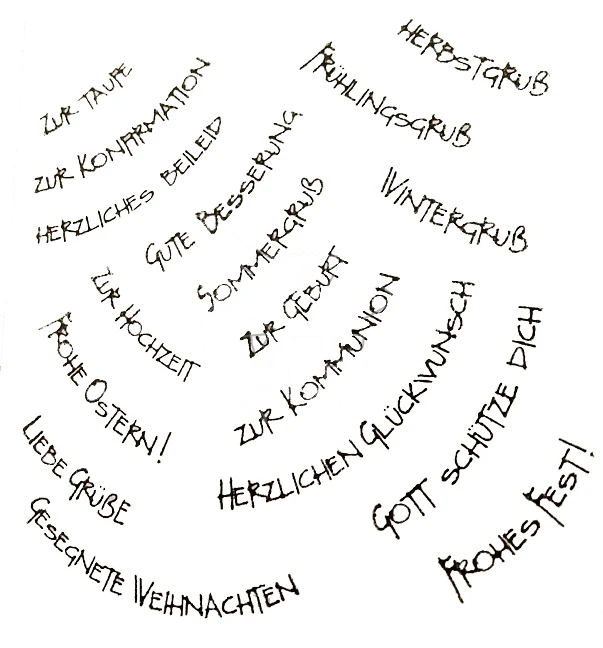 HERBSTGRUß
FRÜHLINGSGRUß
ZUR TAUFE
ZUR KONFIRMATION
HERZLICHES BEILEID
GUTE BESSERUNG
SOMMERGRUß
WINTERGRUß
ZUR HOCHZEIT
ZUR GEBURT
ZUR KOMMUNION
HERZLICHEN GLÜCKWUNSCH
GOTT SCHÜTZE DICH
FROHE OSTERN!
LIEBE GRÜßE
GESEGNETE WEIHNACHTEN
FROHES FEST!